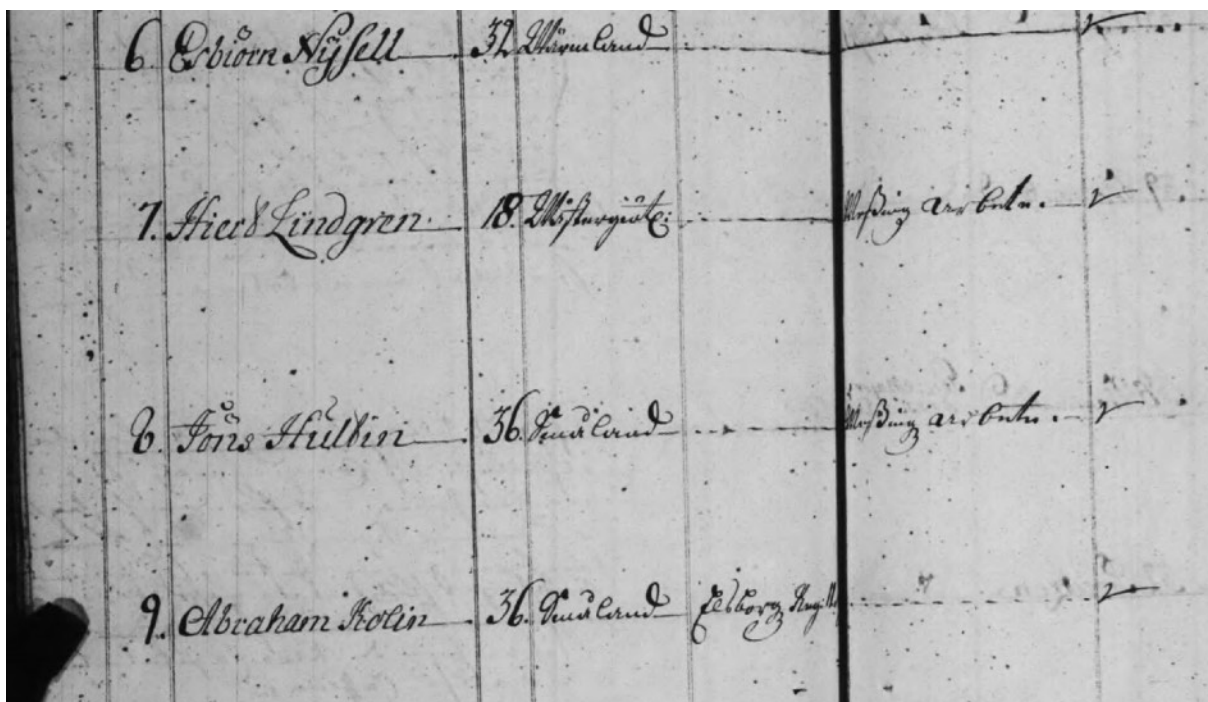 6. Esbiörn Nÿsell 32. Wärmland
7. Hierl Lindgren 18. Westergiötl: Meßing arbetn.
8. Jöns Hultin 36. Småland Meßing arbetn.
9. Abraham Kolin 36. Småland Elsborg Reg:te